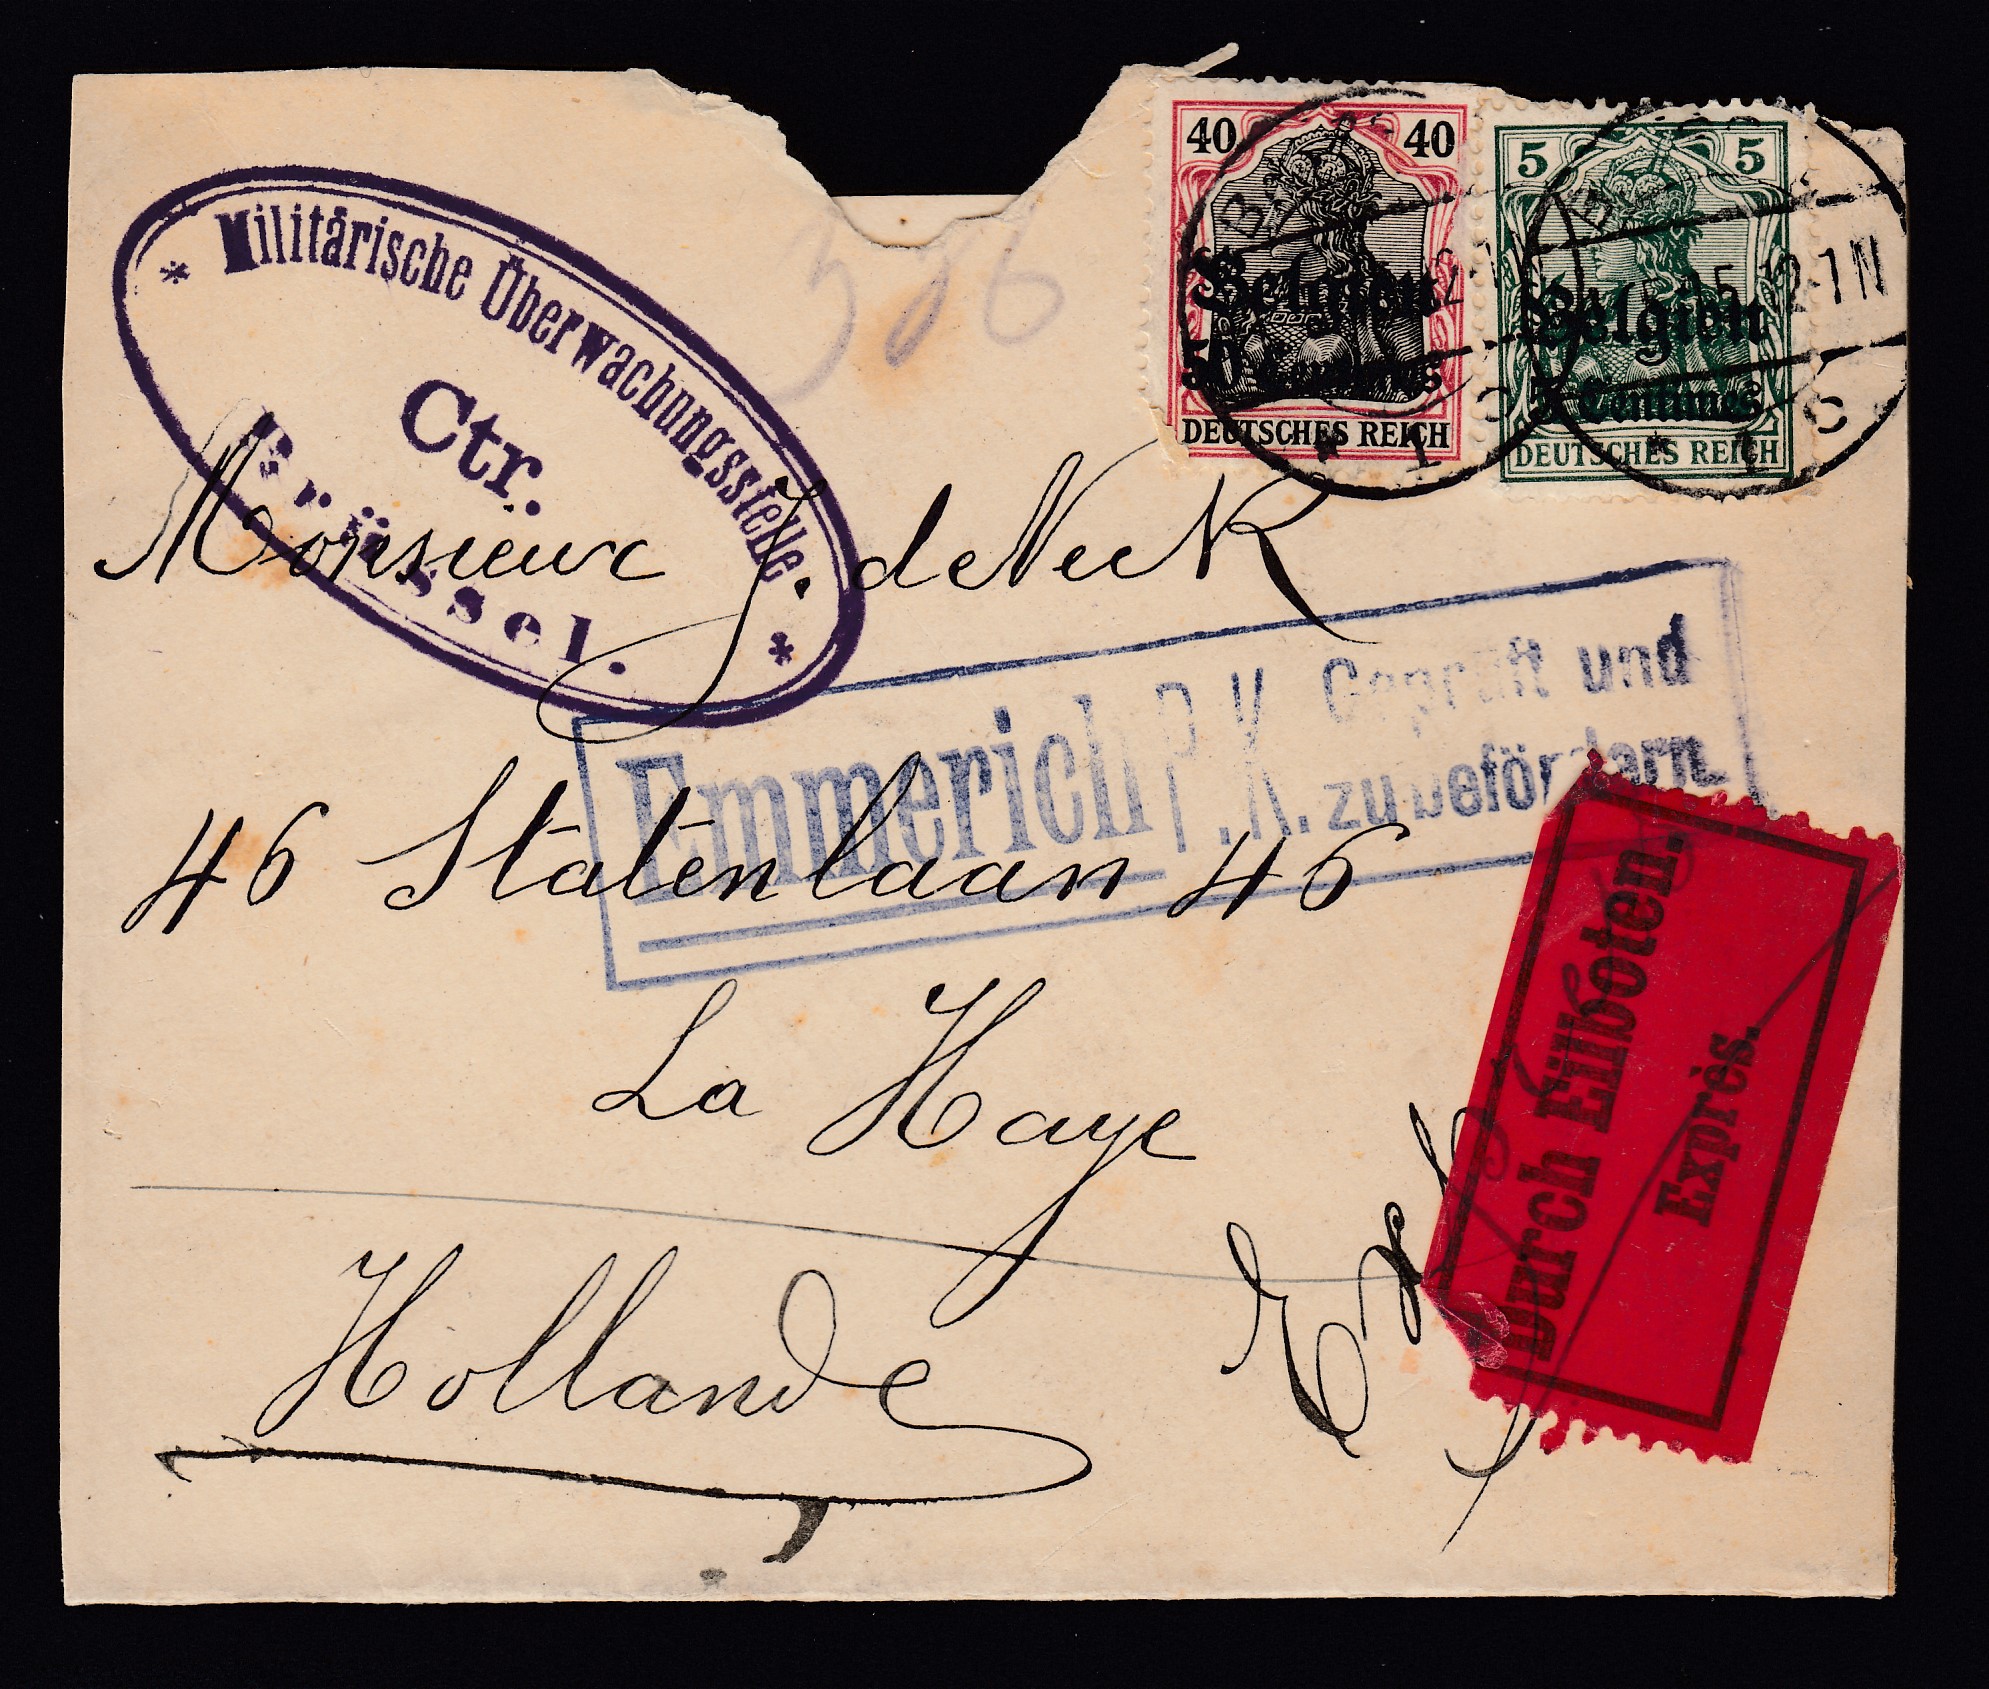 40 40
Belgien
50 Centimes
DEUTSCHES REICH
5 5
Belgien
5 Centimes
DEUTSCHES REICH
12-1N
* 1 C
* 1 C
386
* Militärische Überwachungsstelle. *
Ctr.
Brüssel.
Monsieur J. de Neck
Emmerich P.K. Geprüft und
zu befördern.
46 Statenlaan 46
La Haye
Hollande
Durch Eilboten.
Exprès.